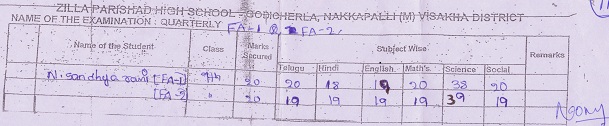 ZILLA PARISHAD HIGH SCHOOL - GODICHERLA, NAKKAPALLI (M) VISAKHA DISTRICT
NAME OF THE EXAMINATION : QUARTERLY FA-1 & FA-2,
Name of the Student Class Marks Secured Subject Wise Remarks
Telugu Hindi English Math's Science Social
N. Sandhya rani [FA-1] 9th 20 20 18 19 20 38 20
[FA-2] " 20 19 19 19 19 39 19